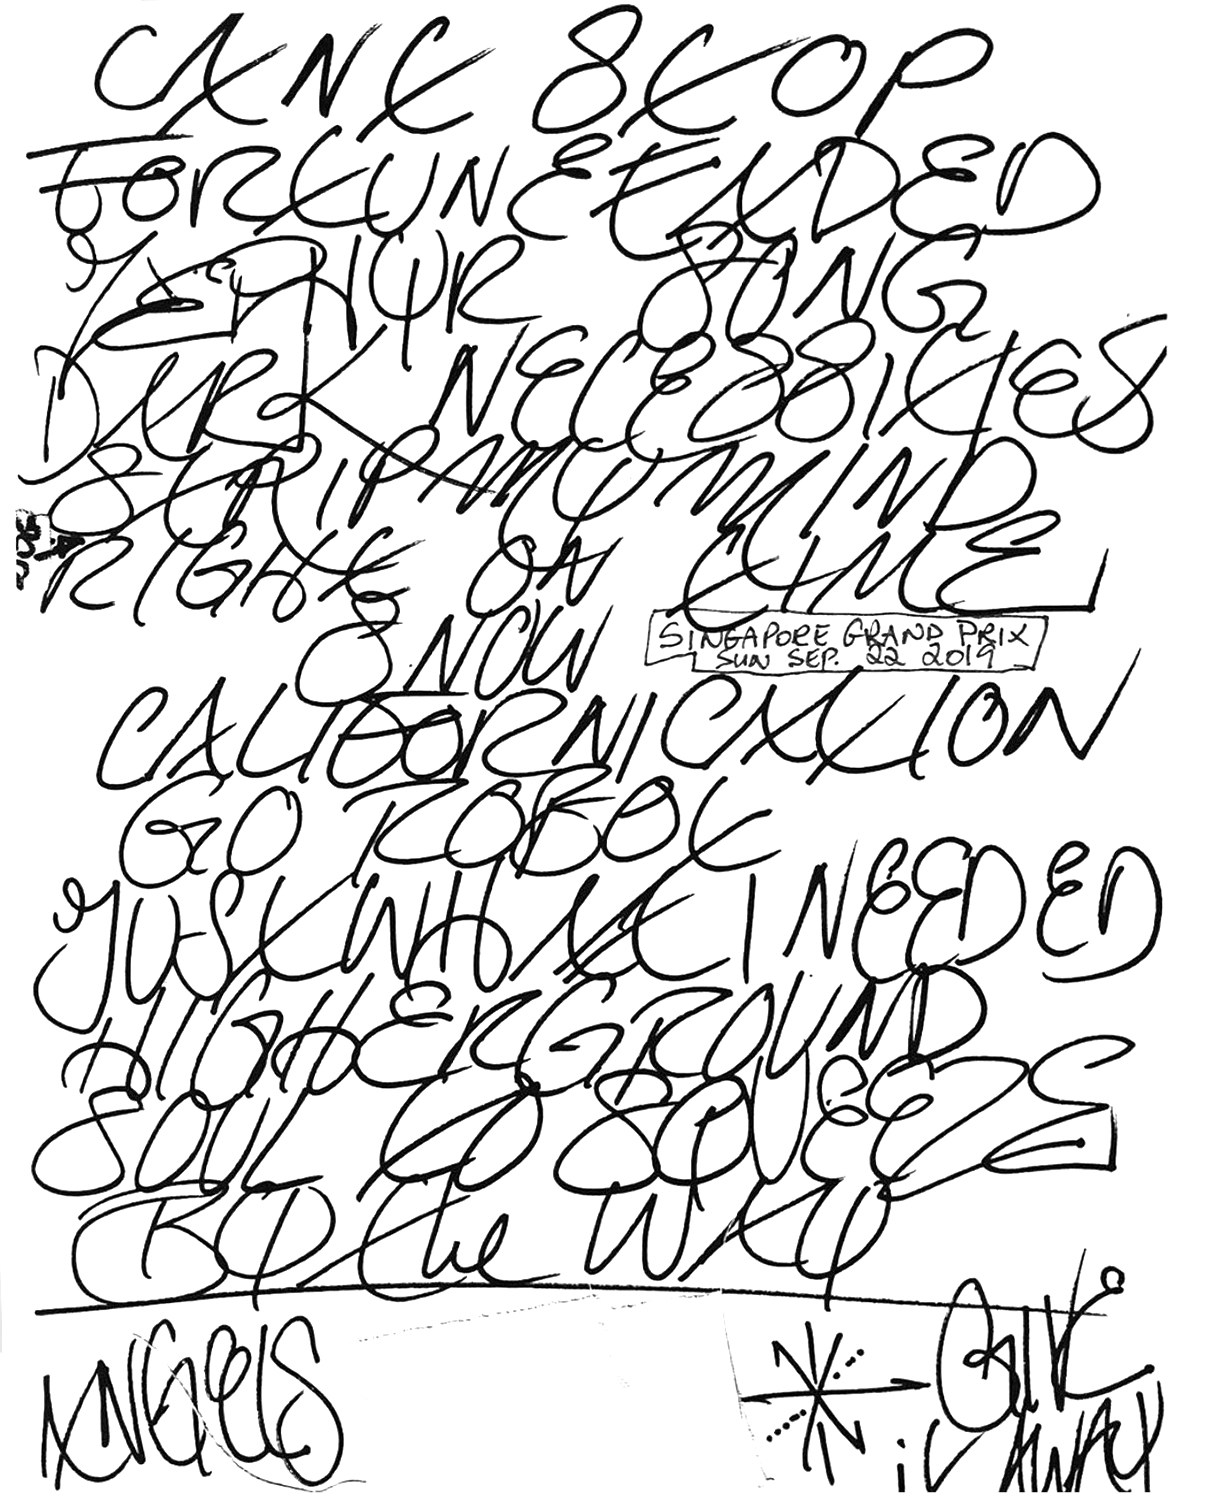 CAN'T STOP
FORTUNE FADED
ZEPHYR SONG
DARK NECESSITIES
STRIP MY MIND
RIGHT ON TIME
SNOW
SINGAPORE GRAND PRIX
SUN SEP. 22 2019
CALIFORNICATION
GO ROBOT
JUST WHAT I NEEDED
HIGHER GROUND
SOUL TO SQUEEZE
BY the WAY
ANGELS
GIVE
iT AWAY